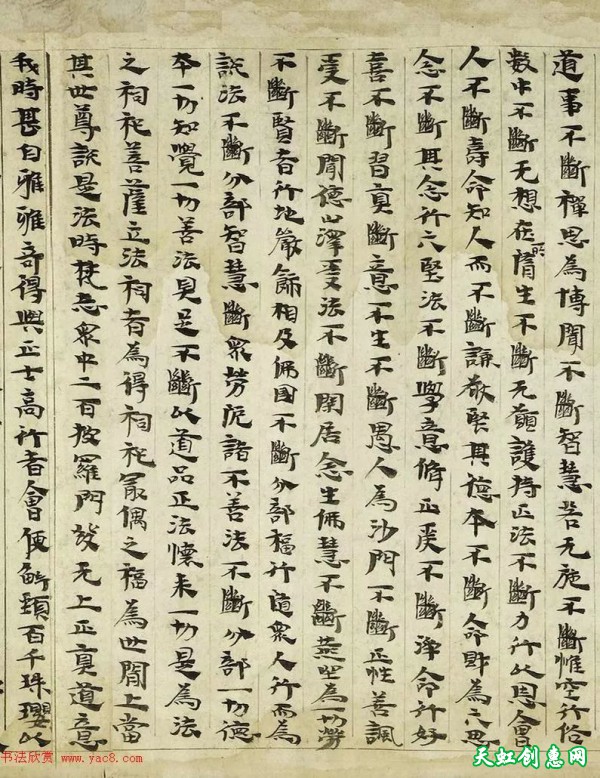 道事不斷禪思為博聞不斷智慧苦无施不斷惟空行俗
數中不斷无想在所墯生不斷无願護持正法不斷力行以恩會
人不斷壽命知人而不斷謙敬堅其德本不斷命財為六思
念不斷其念行六堅法不斷學意脩正受不斷淨命行好
喜不斷習真斷意不生不斷愚人為沙門不斷正性善諷
受不斷聞德山澤受法不斷閑居念生佛慧不斷燕坐為一切勞
不斷賢者行地嚴飾相及佛國不斷分部福行隨眾人行而為
說法不斷分部智慧斷眾勞厄諸不善法不斷分部一切德
本一切知覺一切善法具足不斷以道品正法懷来一切是為法
之祠祀菩薩立法祠者為得祠祀冣偶之福為世間上當
其世尊說是法時梵志眾中二百披羅門發无上正真道意
我時甚自雅雅奇得與正士高行者會便解頸百千珠瓔以
书法欣赏 www.yac8.com
天虹创惠网